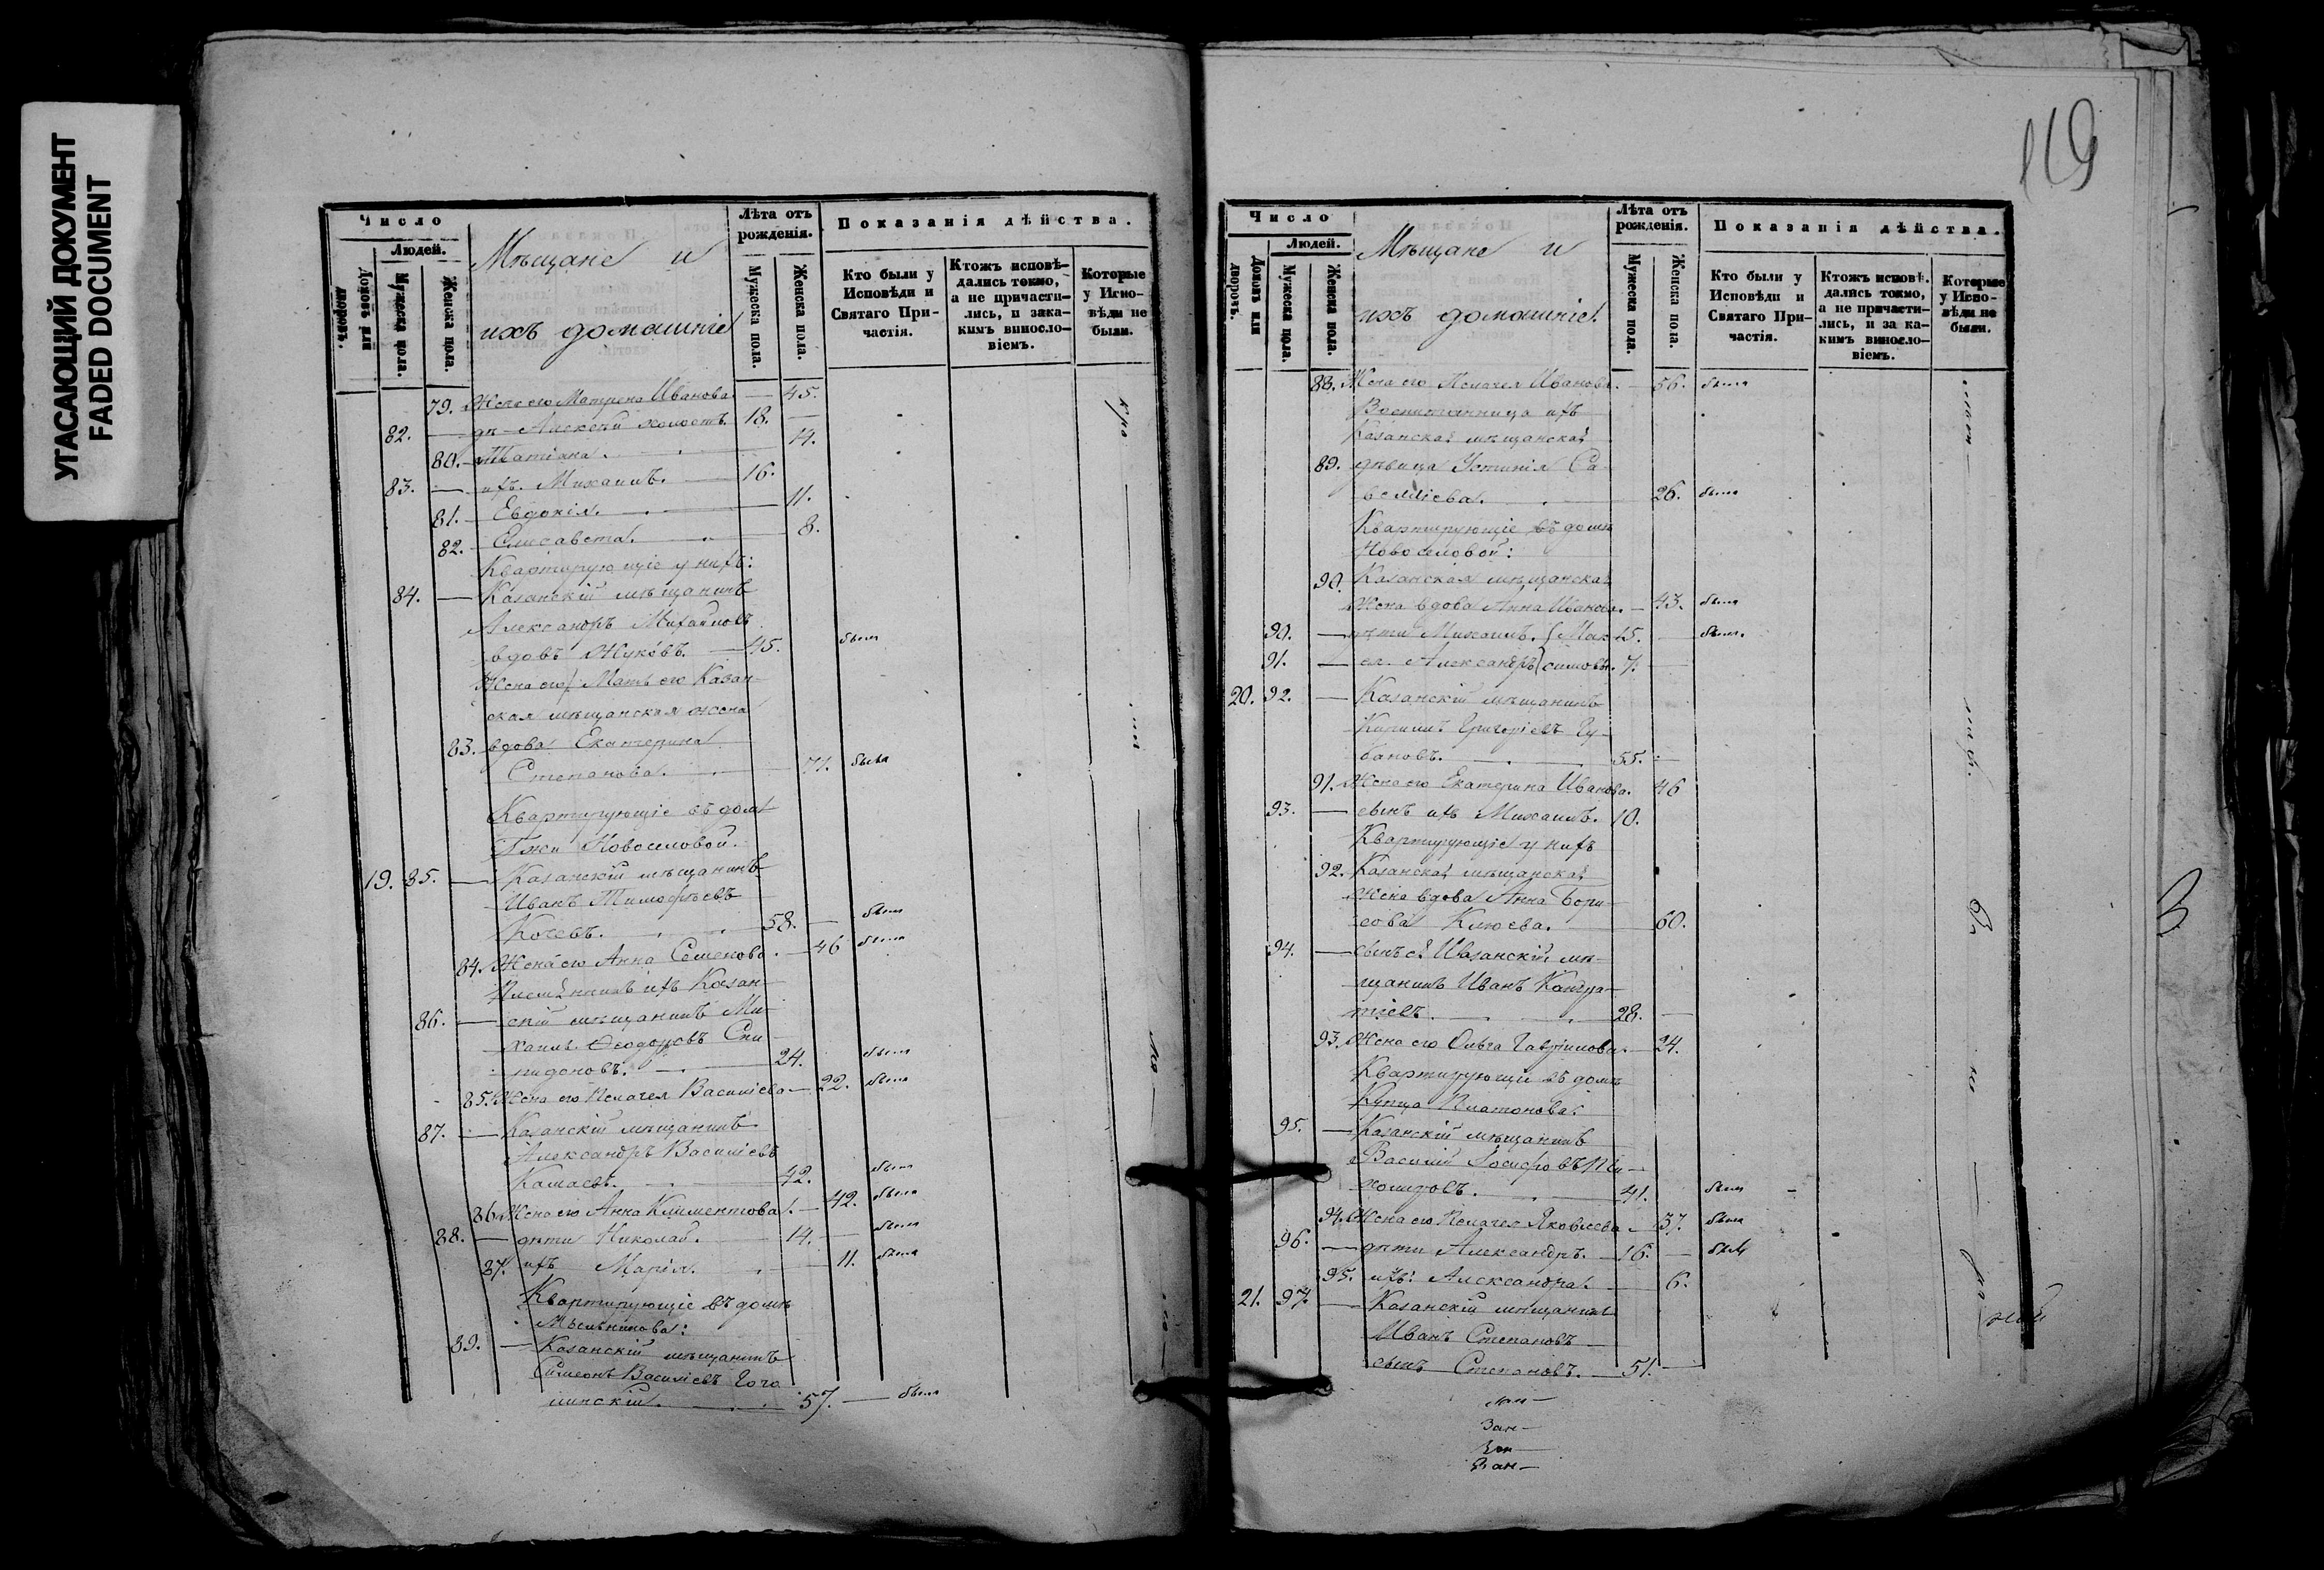 УГАСАЮЩИЙ ДОКУМЕНТ
FADED DOCUMENT
Число
Людей.
Домовъ или дворовъ.
Мужеска пола.
Женска пола.
Мѣщане и
ихъ домашніе
Лѣта отъ рожденія.
Мужеска пола.
Женска пола.
Показанія дѣйства.
Кто были у Исповѣди и Святаго Причастія.
Ктожъ исповѣдались токмо, а не причастились, и зака-кимъ винословіемъ.
Которые у Исповѣди не были.
79. Жена его Матрена Иванова — 45.
82. — дѣ — Алексѣй холостъ 18. —
80. Татіана. 14.
83. — ихъ. Михаилъ. — 16.
81. Евдокія. 11.
82. Елисавета. 8.
Квартирующіе у нихъ:
84. — Казанскій мѣщанинъ
Александръ Михайловъ
вдовъ Жуковъ. — 45. былъ
Жена его/: Мать его Казан-
ская мѣщанская жена
83. вдова Екатерина
Степанова. 77. была
Квартирующіе въ домѣ
Гжи Новоселовой.
19. 85. — Казанскій мѣщанинъ
Иванъ Тимофѣевъ
Кочевъ. 58. — былъ
84. Жена его Анна Семенова. — 46 была
Племянникъ ихъ Казан-
86. — скій мѣщанинъ Ми-
хаилъ Ѳеодоровъ Спи-
ридоновъ. 24. былъ
85. Жена его Пелагея Василіева — 22. была
87. — Казанскій мѣщанинъ
Александръ Василіевъ
Камаевъ. 42. былъ
86. Жена его Анна Климентова. — 42. была
88. — дѣти Николай. 14. — былъ
87. ихъ Марія. 11. была
Квартирующіе въ домѣ
Мыльникова:
89. — Казанскій мѣщанинъ
Симеонъ Василіевъ Гого
линскій. 57. — былъ
119
Число
Людей.
Домовъ или дворовъ.
Мужеска пола.
Женска пола.
Мѣщане и
ихъ домашніе.
Лѣта отъ рожденія.
Мужеска пола.
Женска пола.
Показанія дѣйства.
Кто были у Исповѣди и Святаго Причастія.
Ктожъ исповѣ. дались токмо, а не причастились, и за какимъ винословіемъ.
Которые у Исповѣди не были.
88. Жена его Пелагея Иванова. — 56. была
Воспитанница ихъ
Казанская мѣщанская
89. дѣвица Устинія Са-
веліева. 26. была
Квартирующіе въ домѣ
Новоселовой:
90. Казанская мѣщанская
Жена вдова Анна Иванова. — 43. была
90. — дѣти Михаилъ. Мак 15. — былъ.
91. — ея. Александръ симовы. 7. —
20. 92. — Казанскій мѣщанинъ
Кириллъ Григоріевъ Гу-
бановъ. 55. —
91. Жена его Екатерина Иванова. 46
93. — сынъ ихъ Михаилъ. 10.
Квартирующіе у нихъ
92. Казанская мѣщанская
Жена вдова Анна Бори-
сова Клюева. 60.
94. — сынъ ея Казанскій мѣ-
щанинъ Иванъ Кондра-
тіевъ. 28. —
93. Жена его Ольга Гавріилова. — 24.
Квартирующіе въ домѣ
Купца Платонова.
95. — Казанскій мѣщанинъ
Василій Іосифовъ
41. былъ
94. Жена его Пелагея Яковлева — 37. была
96. — дѣти Александръ. — 16. — былъ
95. ихъ: Александра. 6.
21. 97. — Казанскій мѣщанинъ
Иванъ Степановъ
сынъ Степановъ. — 51. —